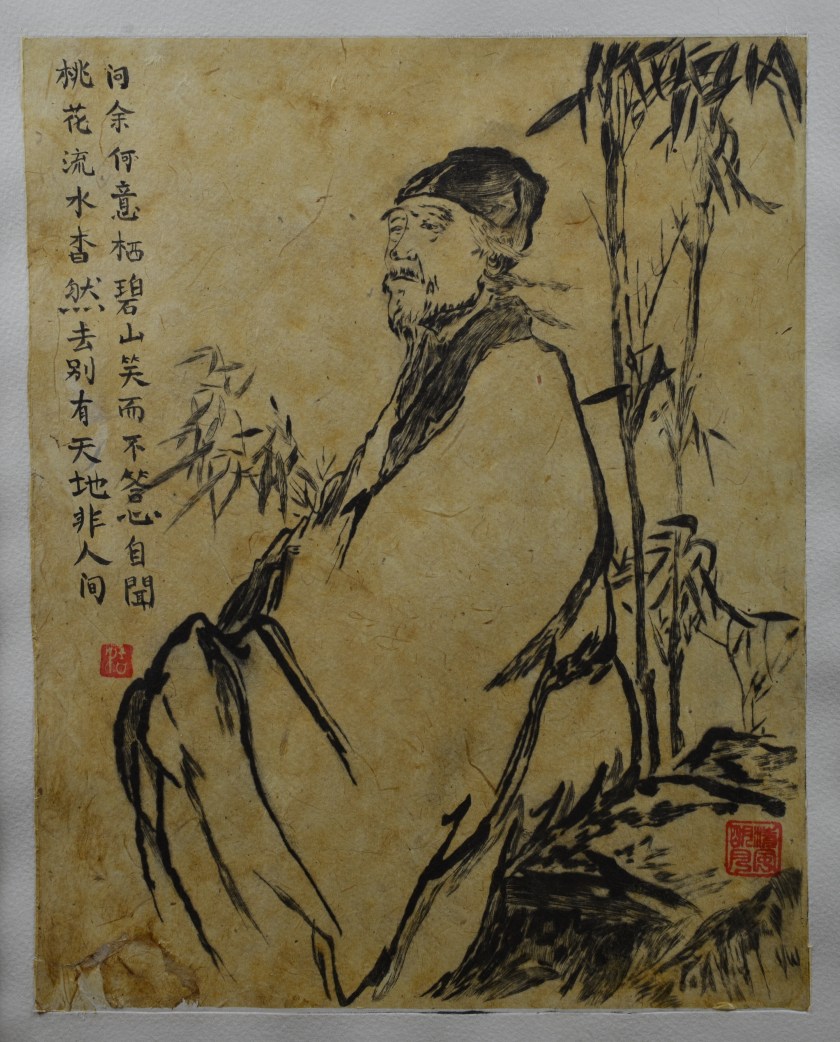 问余何意栖碧山笑而不答心自聞
桃花流水杳然去别有天地非人间